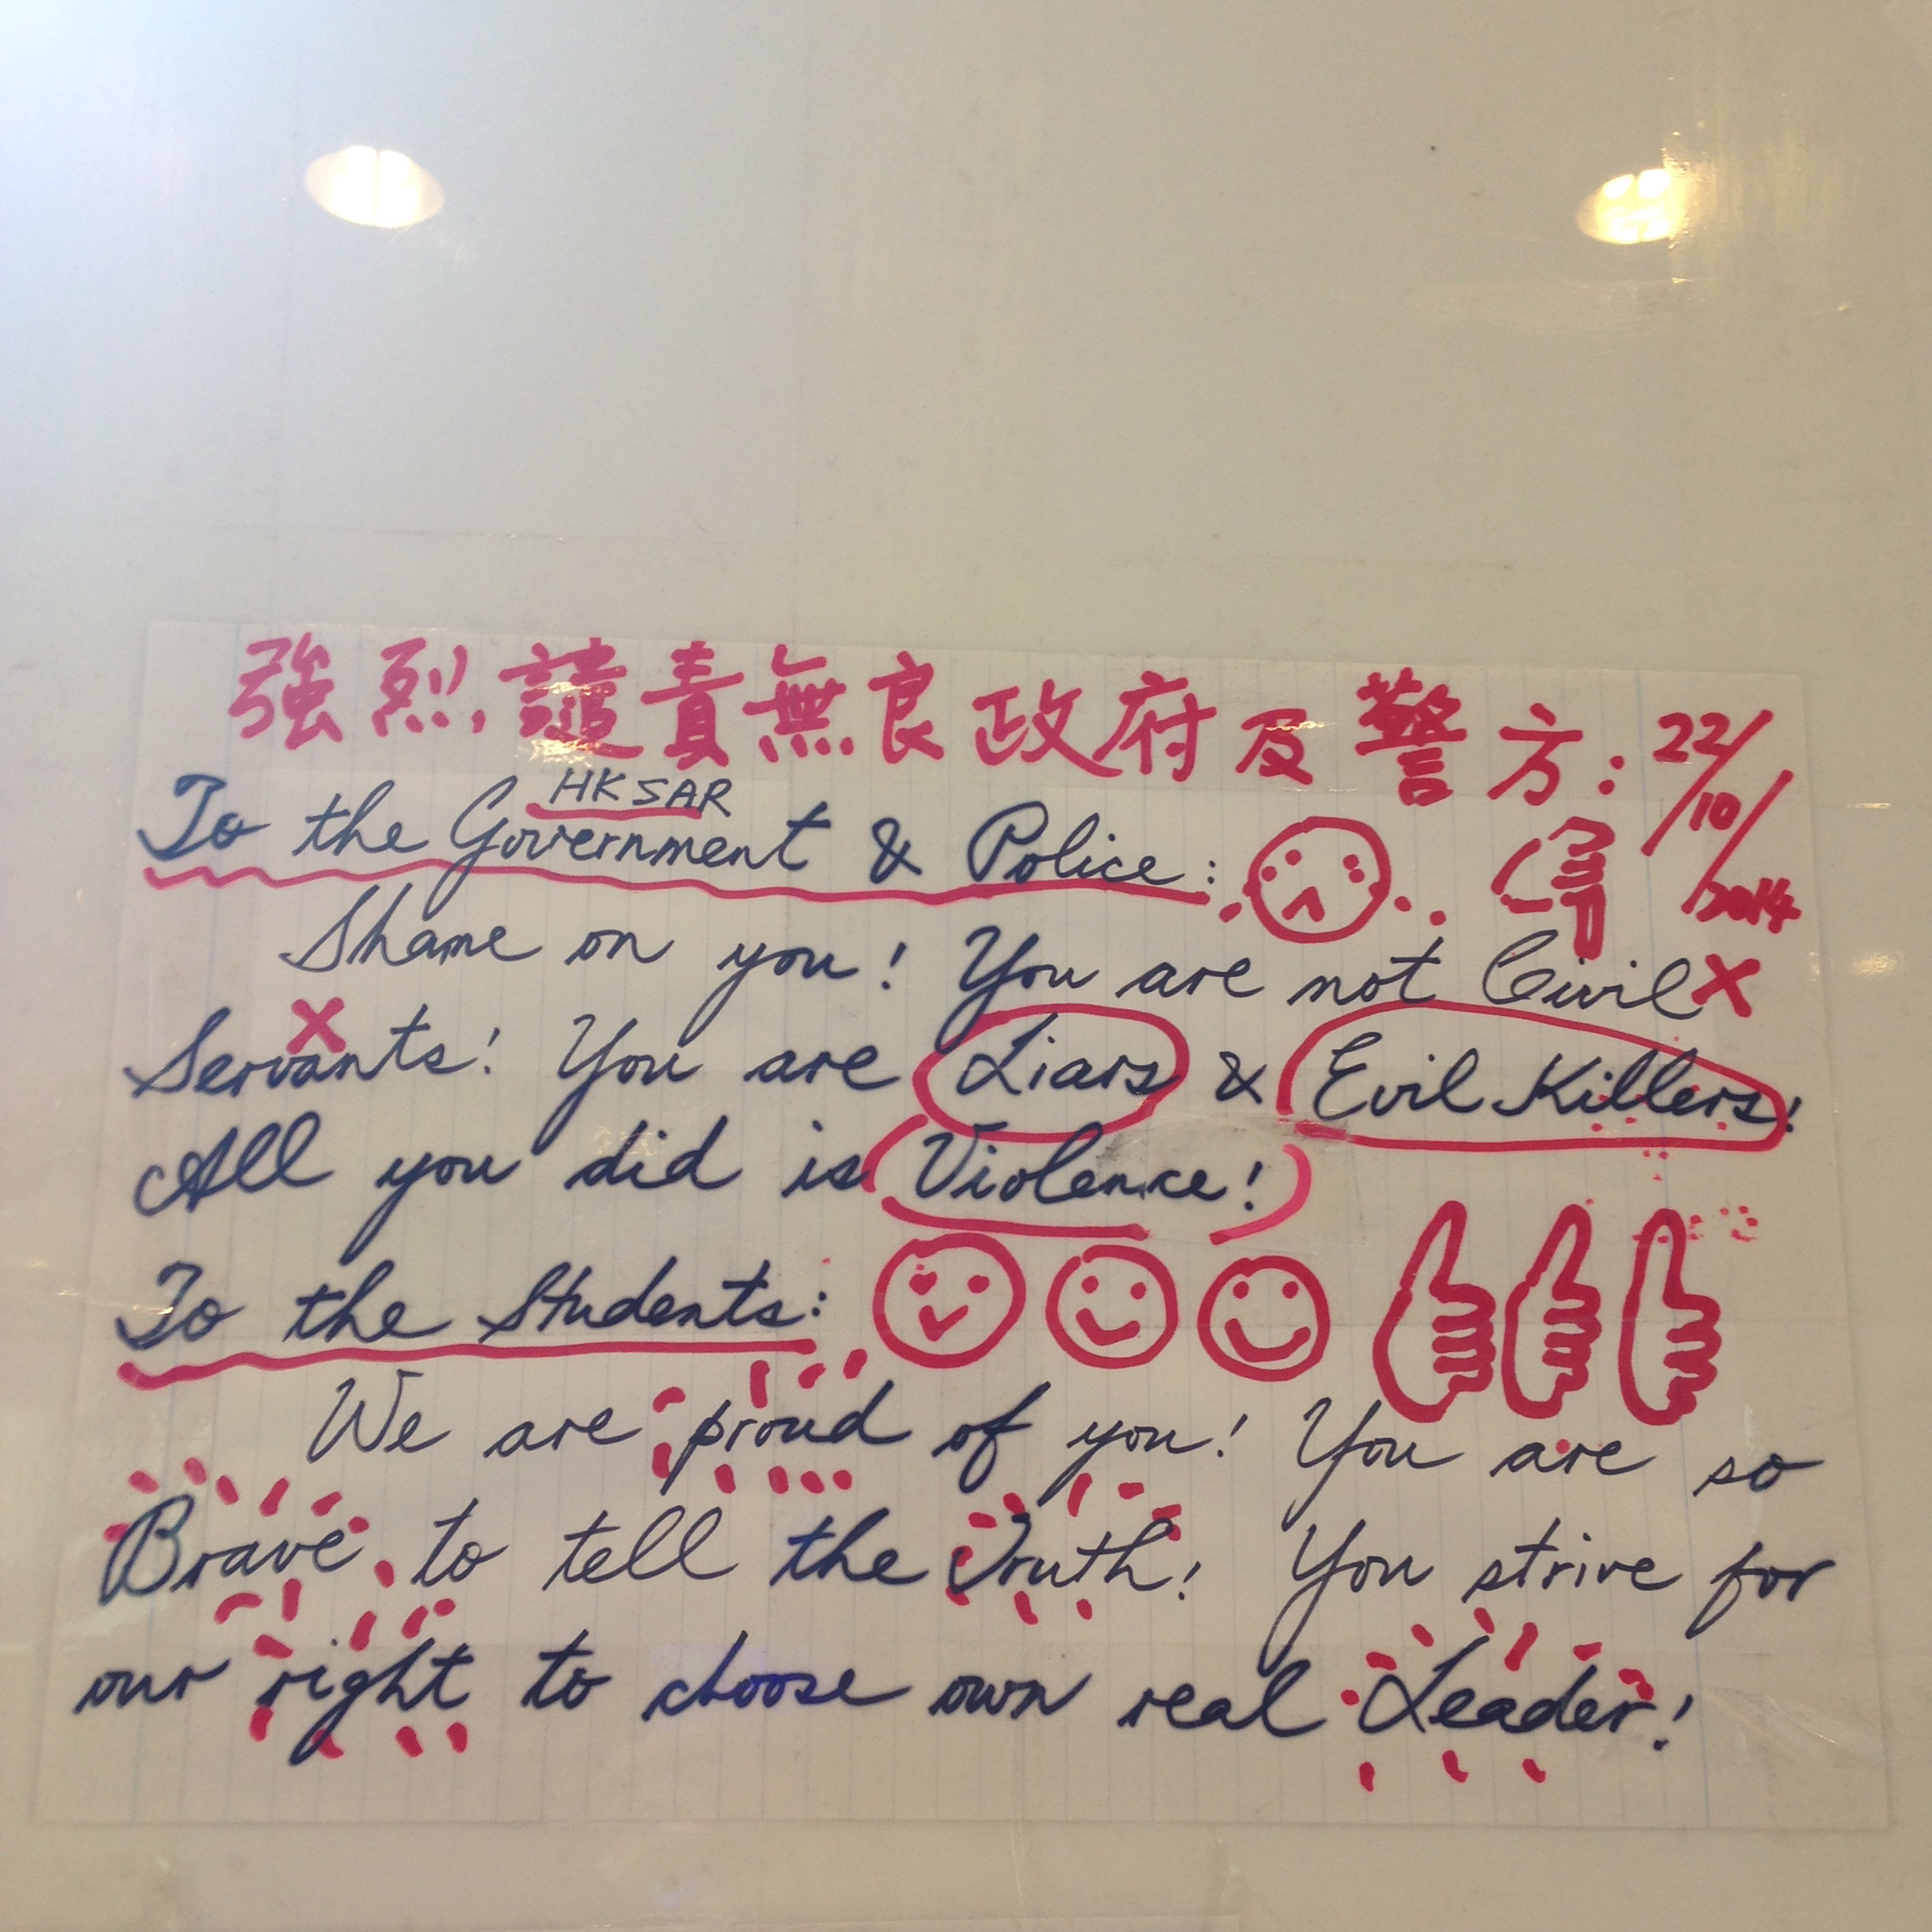 強烈譴責無良政府及警方: 22/10/2014
HKSAR
To the Government & Police:
Shame on you! You are not Civil
Servants! You are Liars & Evil Killers!
All you did is Violence!
To the Students:
We are proud of you! You are so
Brave to tell the Truth! You strive for
our right to choose own real Leader!